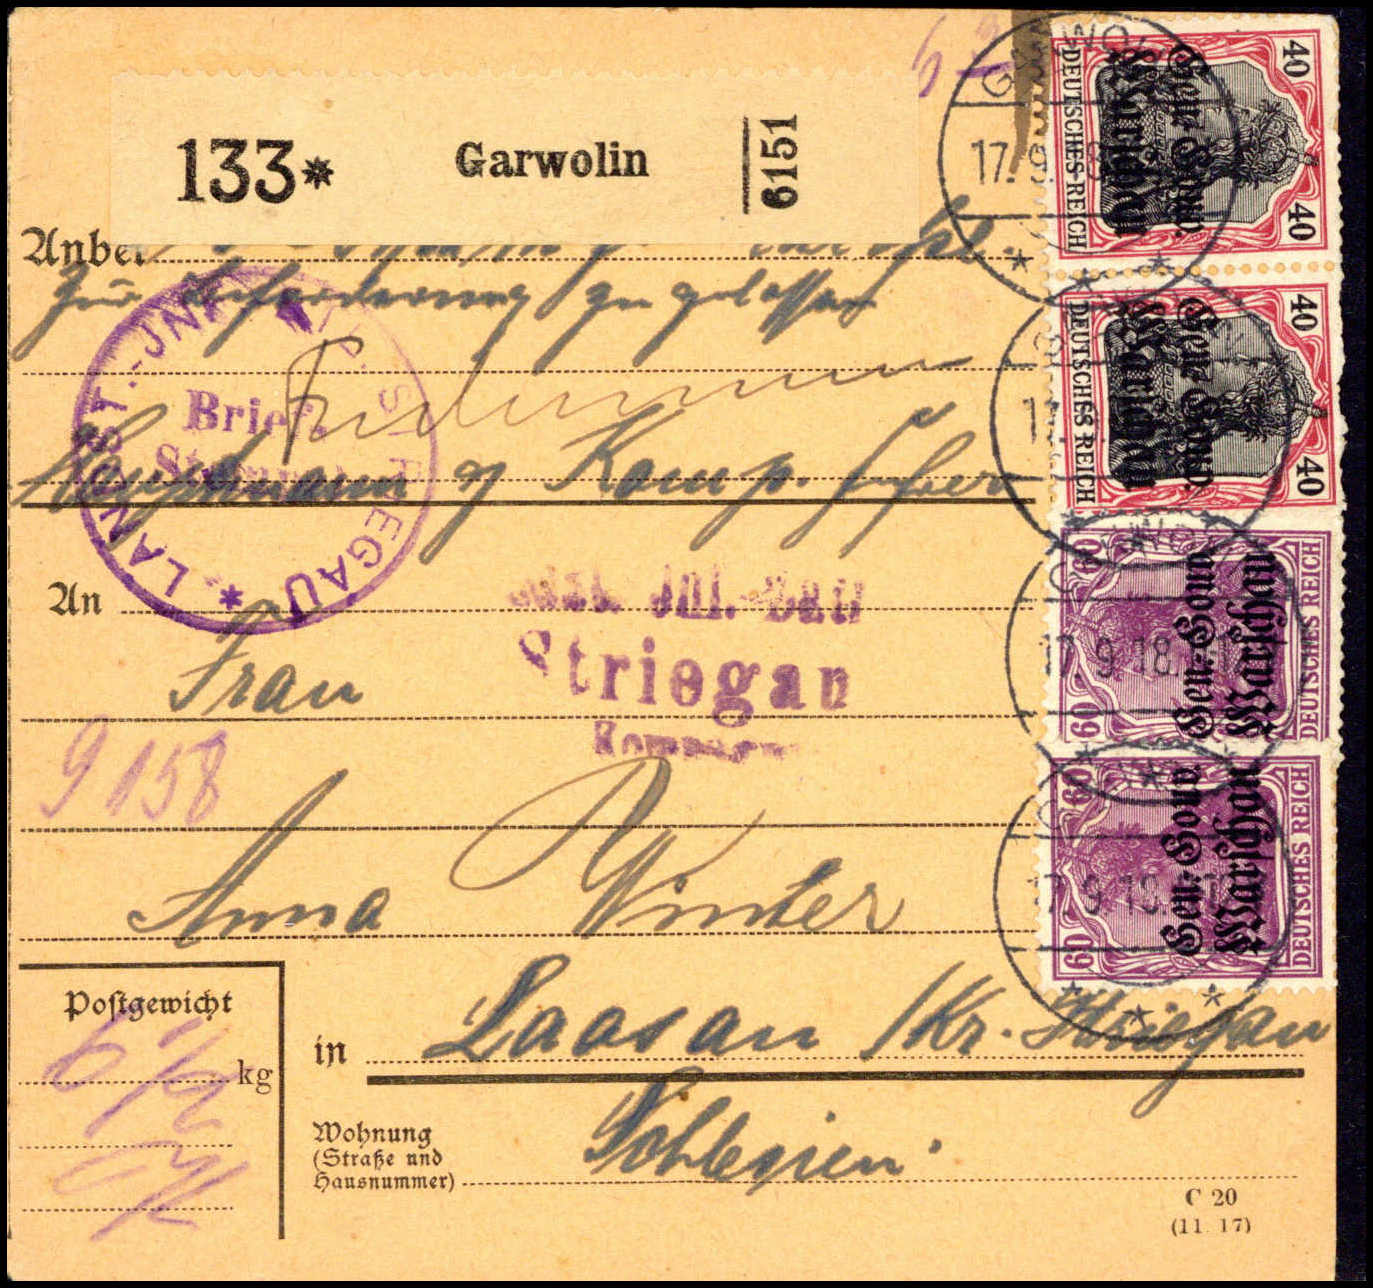 133*
Garwolin
6151
Anbei
zur Beförderung zugelassen
Hauptmann u Komp. Führer
LANDST.-INF. STRIEGAU *
Brief-
An
Striegau
Frau
9158
Anna Winter
Postgewicht
kg
in Laasan /Kr. Striegau
Schlesien.
Wohnung
(Straße und
Hausnummer)
C 20
(11. 17)
GARWOLIN
17. 9. 18
40
DEUTSCHES REICH
40
Gen.-Gouv.
Warschau
40
DEUTSCHES REICH
40
Gen.-Gouv.
Warschau
17. 9. 18.
60
DEUTSCHES REICH
60
Gen.-Gouv.
Warschau
60
DEUTSCHES REICH
60
Gen.-Gouv.
Warschau